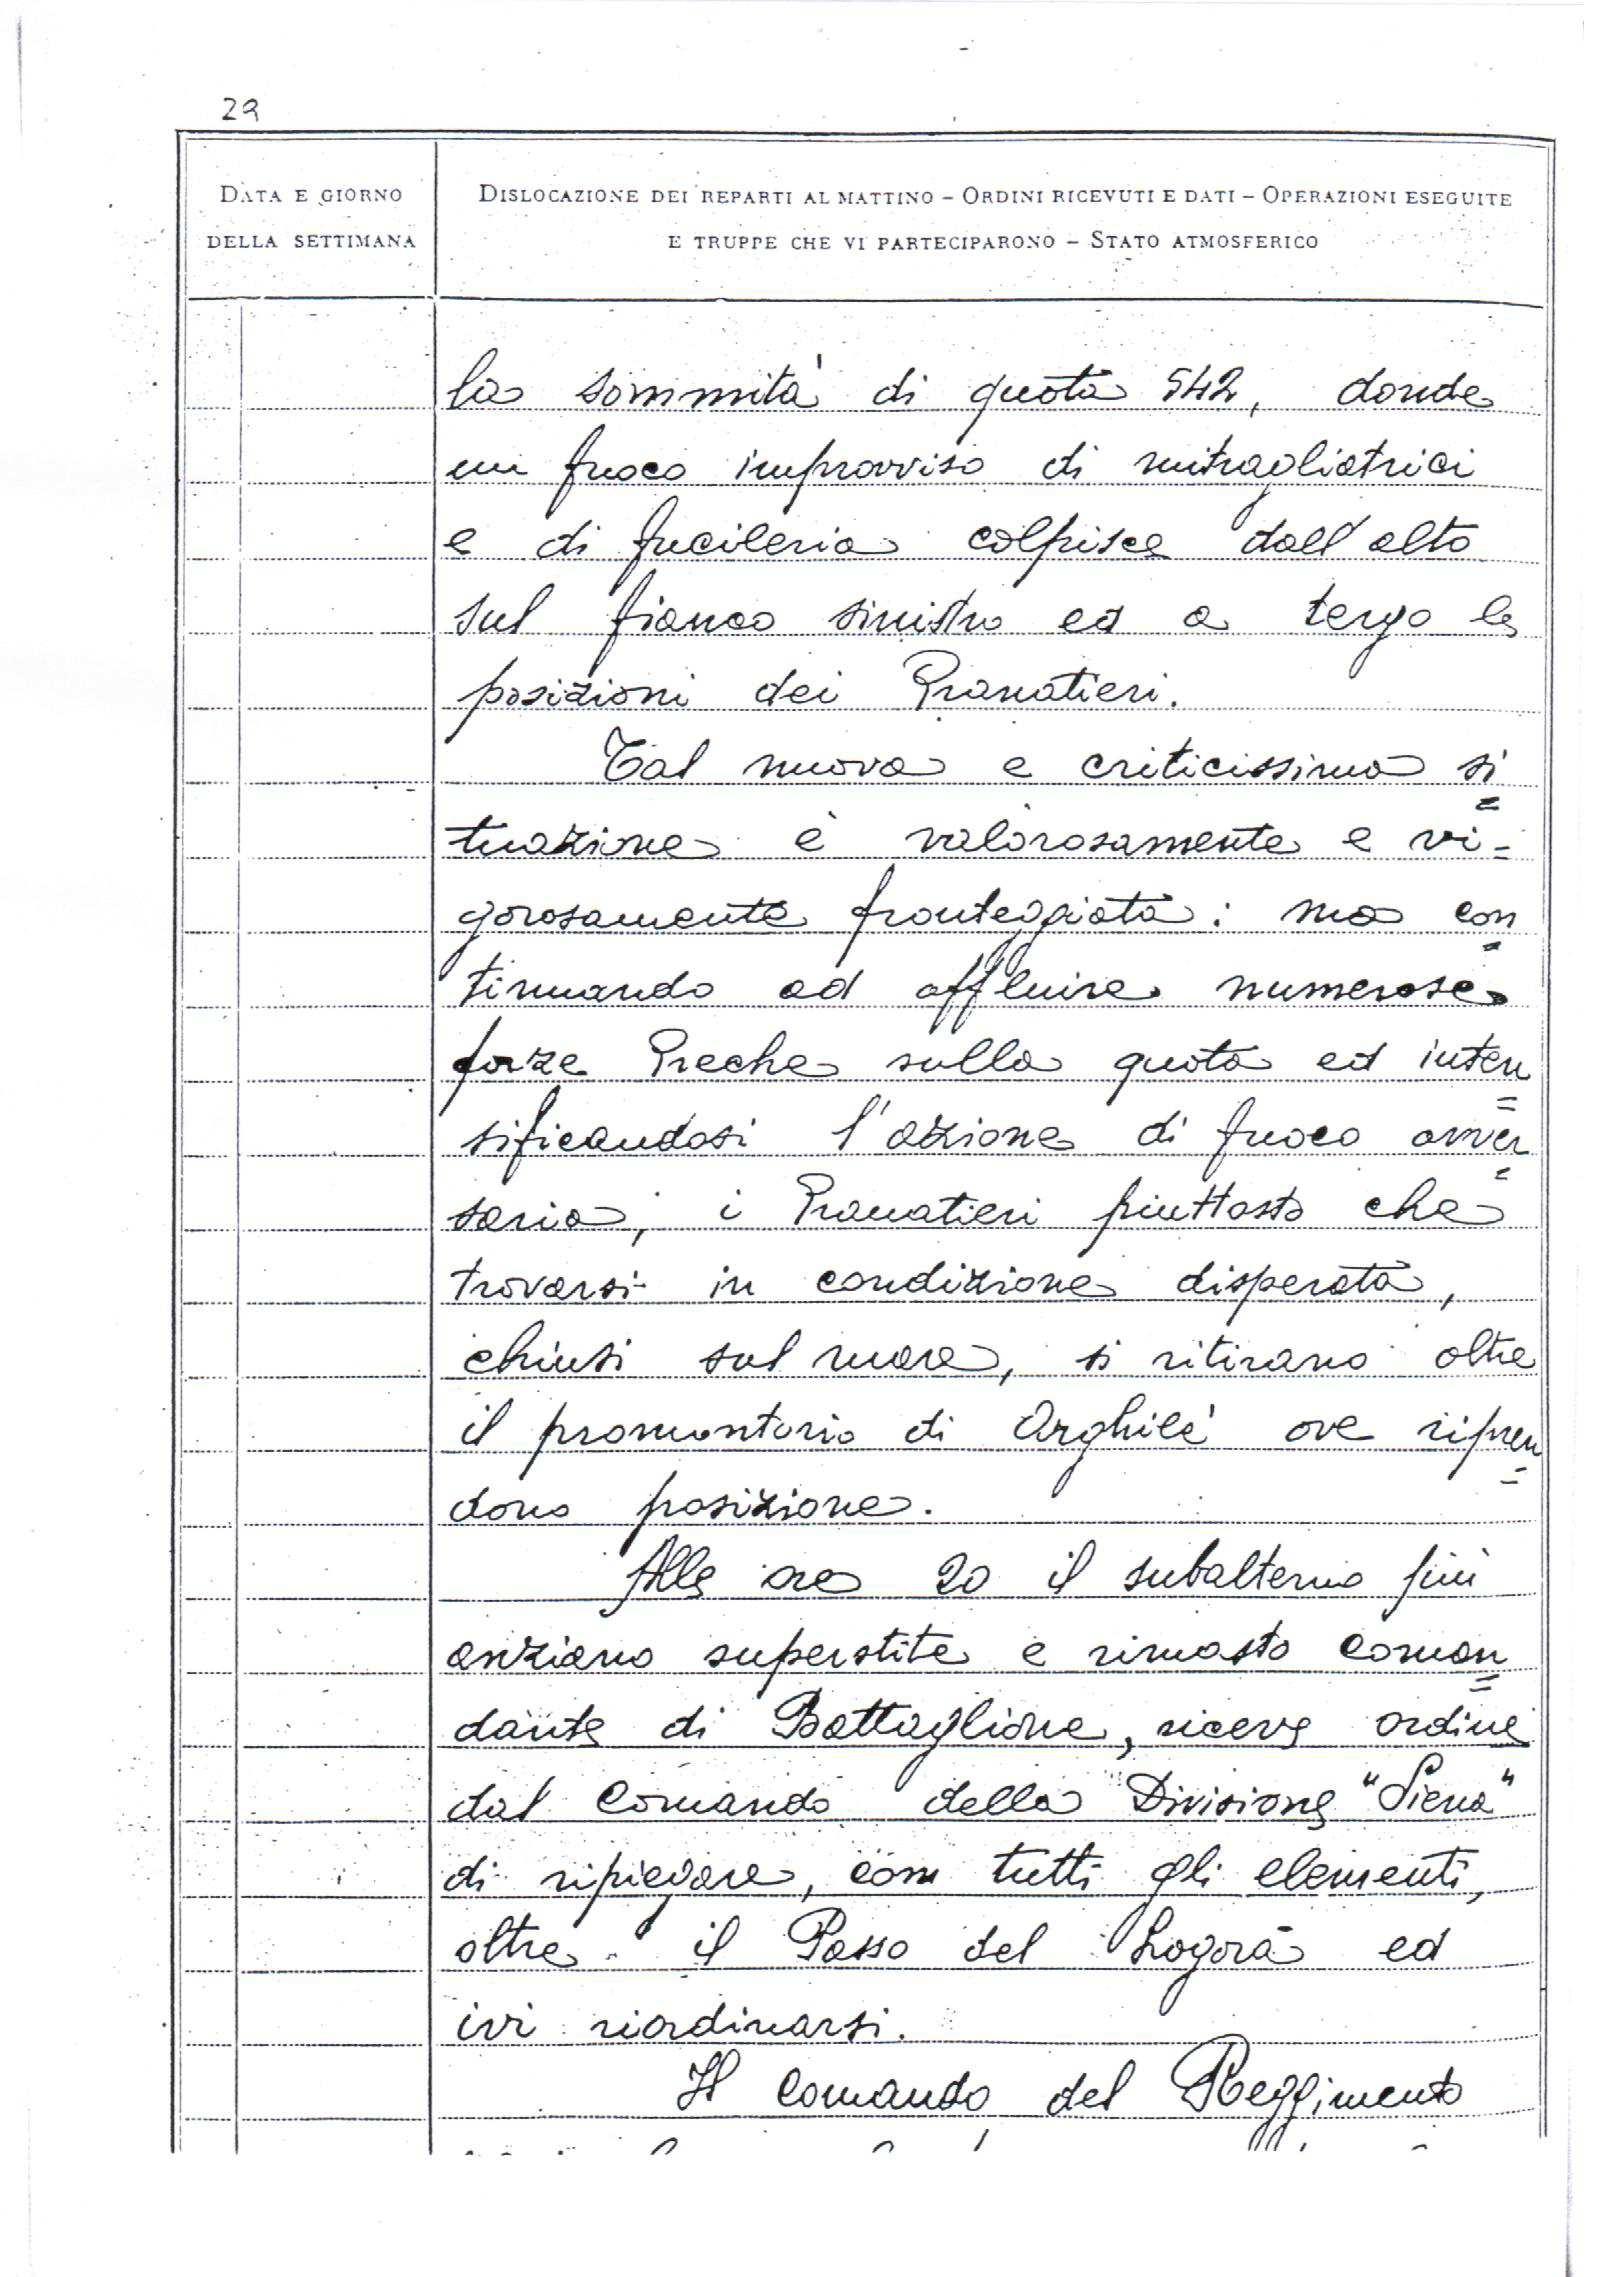 29
DATA E GIORNO
DELLA SETTIMANA
DISLOCAZIONE DEI REPARTI AL MATTINO – ORDINI RICEVUTI E DATI – OPERAZIONI ESEGUITE
E TRUPPE CHE VI PARTECIPARONO – STATO ATMOSFERICO
la sommità di quota 542, donde
un fuoco improvviso di mitragliatrici
e di fucileria colpisce dall'alto
sul fianco sinistro ed a tergo le
posizioni dei Granatieri.
Tal nuova e criticissima si=
tuazione è valorosamente e vi=
gorosamente fronteggiata: ma con=
tinuando ad affluire numerose
forze Greche sulla quota ed inten=
sificandosi l'azione di fuoco avver=
saria, i Granatieri piuttosto che
trovarsi in condizione disperata,
chiusi sul mare, si ritirano oltre
il promontorio di Arghilè ove ripren=
dono posizione.
Alle ore 20 il subalterno più
anziano superstite e rimasto coman=
dante di Battaglione, riceve ordine
dal Comando della Divisione "Siena"
di ripiegare, con tutti gli elementi,
oltre il Passo del Logorà ed
ivi riordinarsi.
Il Comando del Reggimento